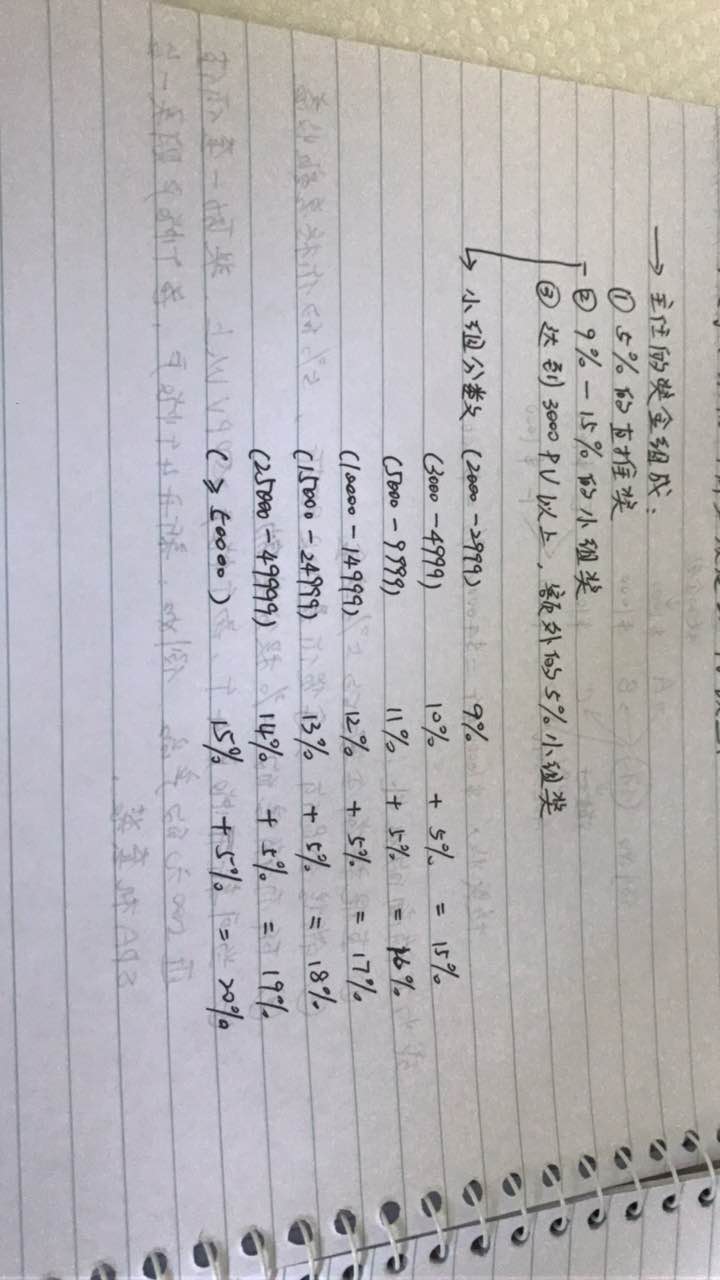 → 主任的奖金组成：
① 5%的直推奖
② 9%-15%的小组奖
③ 达到3000PV以上，额外的5%小组奖
↳ 小组分数 (2000-2999) 9%
(3000-4999) 10% + 5% = 15%
(5000-9999) 11% + 5% = 16%
(10000-14999) 12% + 5% = 17%
(15000-24999) 13% + 5% = 18%
(25000-49999) 14% + 5% = 19%
(≥50000) 15% + 5% = 20%